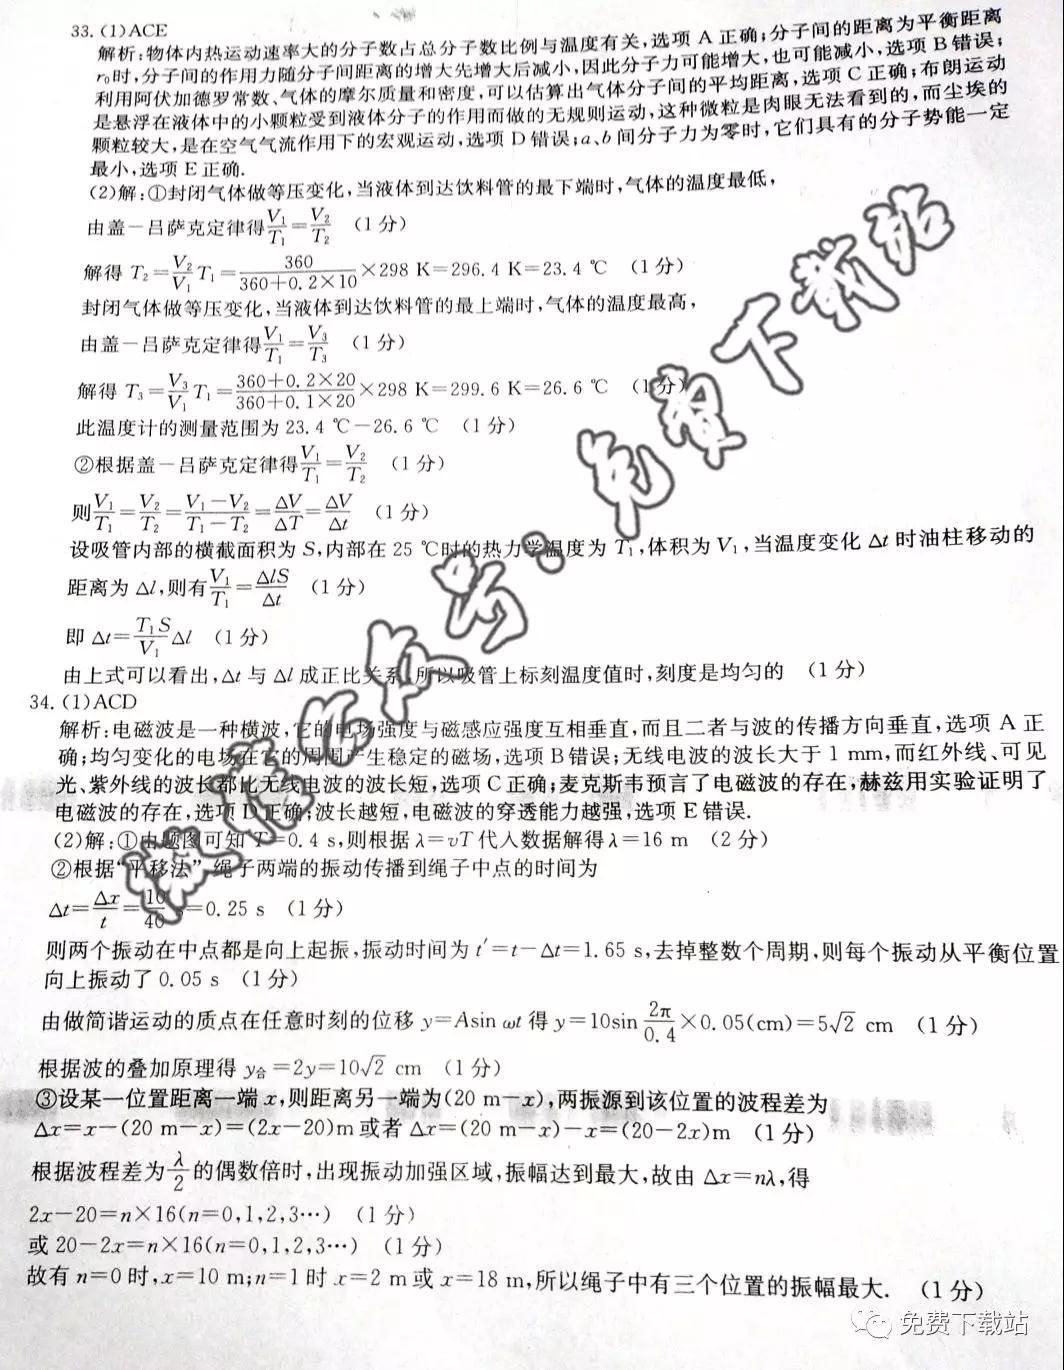 33. (1)ACE
解析:物体内热运动速率大的分子数占总分子数比例与温度有关,选项 A 正确;分子间的距离为平衡距离
r₀时,分子间的作用力随分子间距离的增大先增大后减小,因此分子力可能增大,也可能减小,选项 B 错误;
利用阿伏加德罗常数、气体的摩尔质量和密度,可以估算出气体分子间的平均距离,选项 C 正确;布朗运动
是悬浮在液体中的小颗粒受到液体分子的作用而做的无规则运动,这种微粒是肉眼无法看到的,而尘埃的
颗粒较大,是在空气气流作用下的宏观运动,选项 D 错误;a、b 间分子力为零时,它们具有的分子势能一定
最小,选项 E 正确.
(2)解:①封闭气体做等压变化,当液体到达饮料管的最下端时,气体的温度最低,
由盖-吕萨克定律得V₁/T₁=V₂/T₂ (1分)
解得 T₂=V₂/V₁ T₁=360/(360+0.2×10)×298 K=296.4 K=23.4 ℃ (1分)
封闭气体做等压变化,当液体到达饮料管的最上端时,气体的温度最高,
由盖-吕萨克定律得V₁/T₁=V₃/T₃ (1分)
解得 T₃=V₃/V₁ T₁=(360+0.2×20)/(360+0.1×20)×298 K=299.6 K=26.6 ℃ (1分)
此温度计的测量范围为 23.4 ℃-26.6 ℃ (1分)
②根据盖-吕萨克定律得V₁/T₁=V₂/T₂ (1分)
则V₁/T₁=V₂/T₂=(V₁-V₂)/(T₁-T₂)=ΔV/ΔT=ΔV/Δt (1分)
设吸管内部的横截面积为 S,内部在 25 ℃时的热力学温度为 T₁,体积为 V₁,当温度变化 Δt 时油柱移动的
距离为 Δl,则有V₁/T₁=ΔlS/Δt (1分)
即 Δt=T₁S/V₁ Δl (1分)
由上式可以看出,Δt 与 Δl 成正比关系,所以吸管上标刻温度值时,刻度是均匀的 (1分)
34. (1)ACD
解析:电磁波是一种横波,它的电场强度与磁感应强度互相垂直,而且二者与波的传播方向垂直,选项 A 正
确;均匀变化的电场在它的周围产生稳定的磁场,选项 B 错误;无线电波的波长大于 1 mm,而红外线、可见
光、紫外线的波长都比无线电波的波长短,选项 C 正确;麦克斯韦预言了电磁波的存在,赫兹用实验证明了
电磁波的存在,选项 D 正确;波长越短,电磁波的穿透能力越强,选项 E 错误.
(2)解:①由题图可知 T=0.4 s,则根据 λ=vT 代人数据解得 λ=16 m (2分)
②根据“平移法”绳子两端的振动传播到绳子中点的时间为
Δt=Δx/t=10/40 s=0.25 s (1分)
则两个振动在中点都是向上起振,振动时间为 t′=t-Δt=1.65 s,去掉整数个周期,则每个振动从平衡位置
向上振动了 0.05 s (1分)
由做简谐运动的质点在任意时刻的位移 y=Asin ωt 得 y=10sin 2π/0.4×0.05(cm)=5√2 cm (1分)
根据波的叠加原理得 y合=2y=10√2 cm (1分)
③设某一位置距离一端 x,则距离另一端为(20 m-x),两振源到该位置的波程差为
Δx=x-(20 m-x)=(2x-20)m 或者 Δx=(20 m-x)-x=(20-2x)m (1分)
根据波程差为λ/2的偶数倍时,出现振动加强区域,振幅达到最大,故由 Δx=nλ,得
2x-20=n×16(n=0,1,2,3…) (1分)
或 20-2x=n×16(n=0,1,2,3…) (1分)
故有 n=0 时,x=10 m;n=1 时 x=2 m 或 x=18 m,所以绳子中有三个位置的振幅最大. (1分)
微信公众号:免费下载站
免费下载站